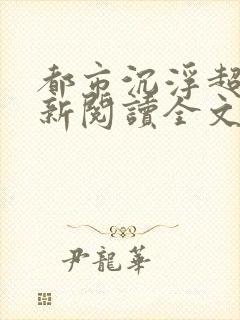 都市沉浮超
新閱讀全文
尹龍華